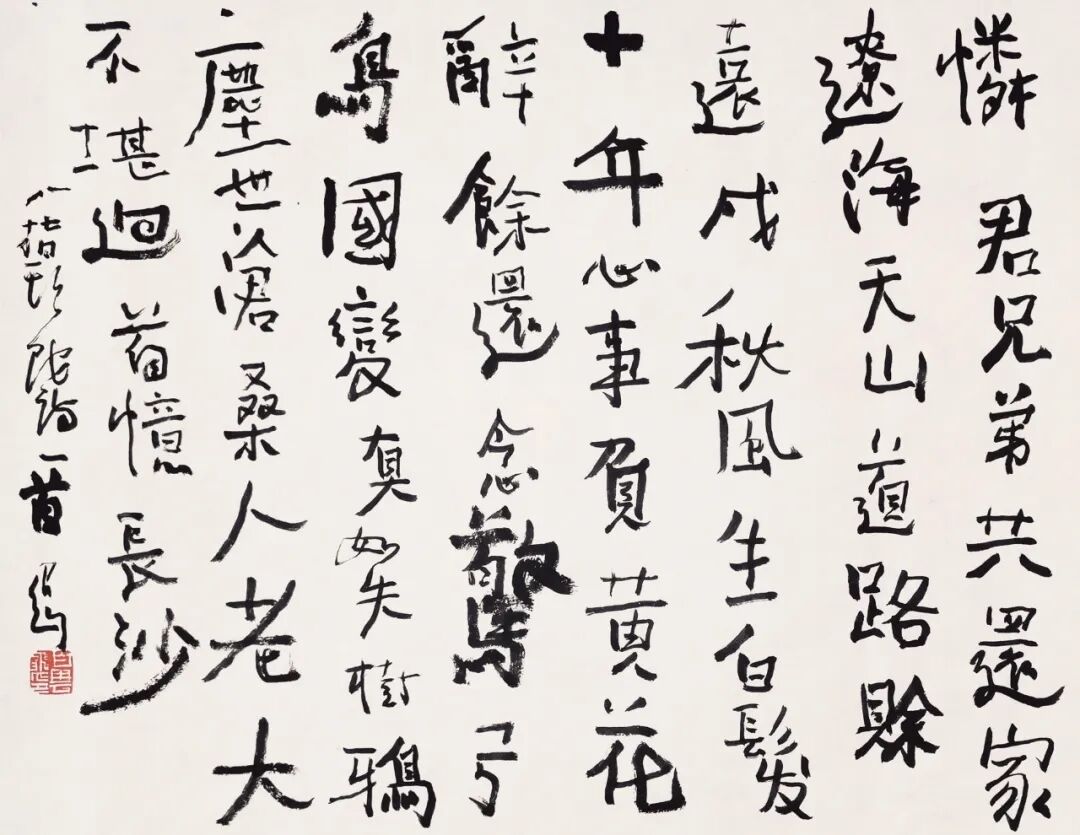 憐君兄弟共還家
遼海天山道路賒
遠戍秋風生白髮
十年心事負黄花
辭餘還念驚弓
鳥國變真如失樹鴉
塵世滄桑人老大
不堪迴首憶長沙
八指頭陀詩一首